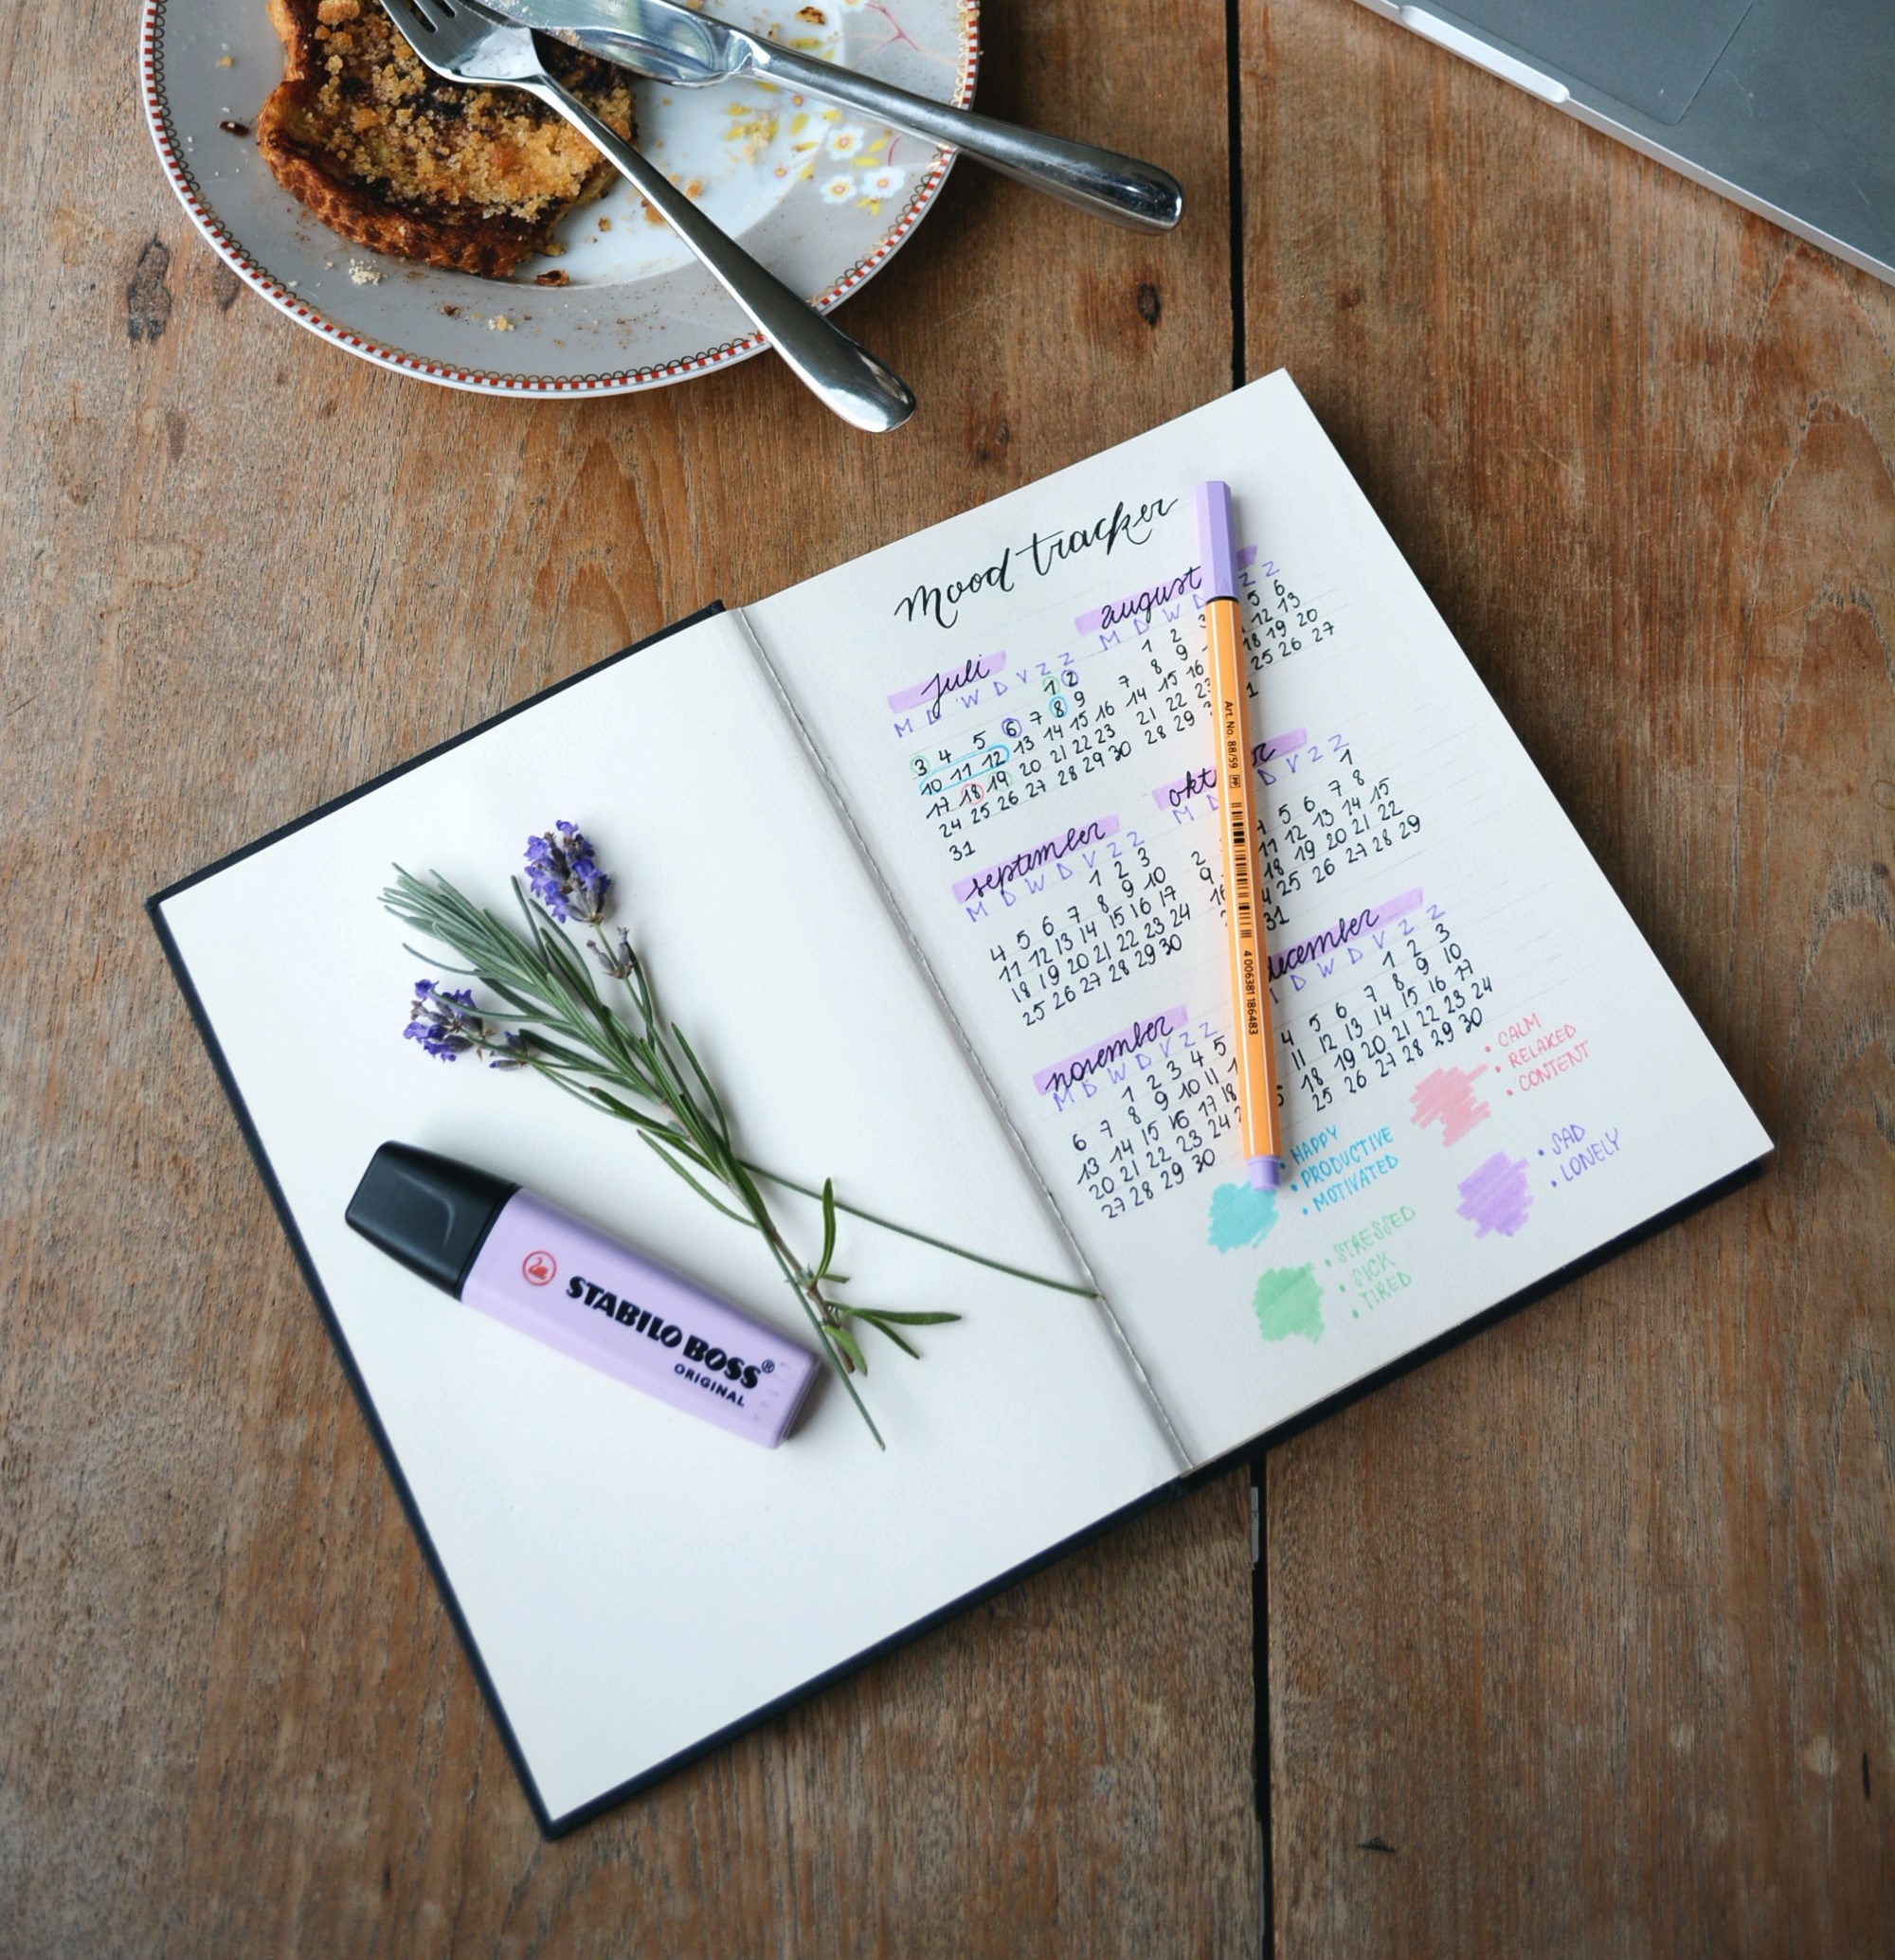 Mood tracker
juli
M D W D V Z Z
1 2
3 4 5 6 7 8 9
10 11 12 13 14 15 16
17 18 19 20 21 22 23
24 25 26 27 28 29 30
31
august
M D W D Z Z
1 2 3 5 6
7 8 9 12 13
14 15 16 18 19 20
21 22 23 25 26 27
28 29
september
M D W D V Z Z
1 2 3
4 5 6 7 8 9 10
11 12 13 14 15 16 17
18 19 20 21 22 23 24
25 26 27 28 29 30
M D V Z Z
1
2 5 6 7 8
9 11 12 13 14 15
16 18 19 20 21 22
25 26 27 28 29
31
november
M D W D V Z Z
1 2 3 4 5
6 7 8 9 10 11
13 14 15 16 17 18
20 21 22 23 24
27 28 29 30
december
D W D V Z Z
1 2 3
4 5 6 7 8 9 10
11 12 13 14 15 16 17
18 19 20 21 22 23 24
25 26 27 28 29 30
• CALM
• RELAXED
• CONTENT
• HAPPY
• PRODUCTIVE
• MOTIVATED
• SAD
• LONELY
• STRESSED
• SICK
• TIRED
Art. No. 88/59
4 006381 186483
STABILO BOSS®
ORIGINAL